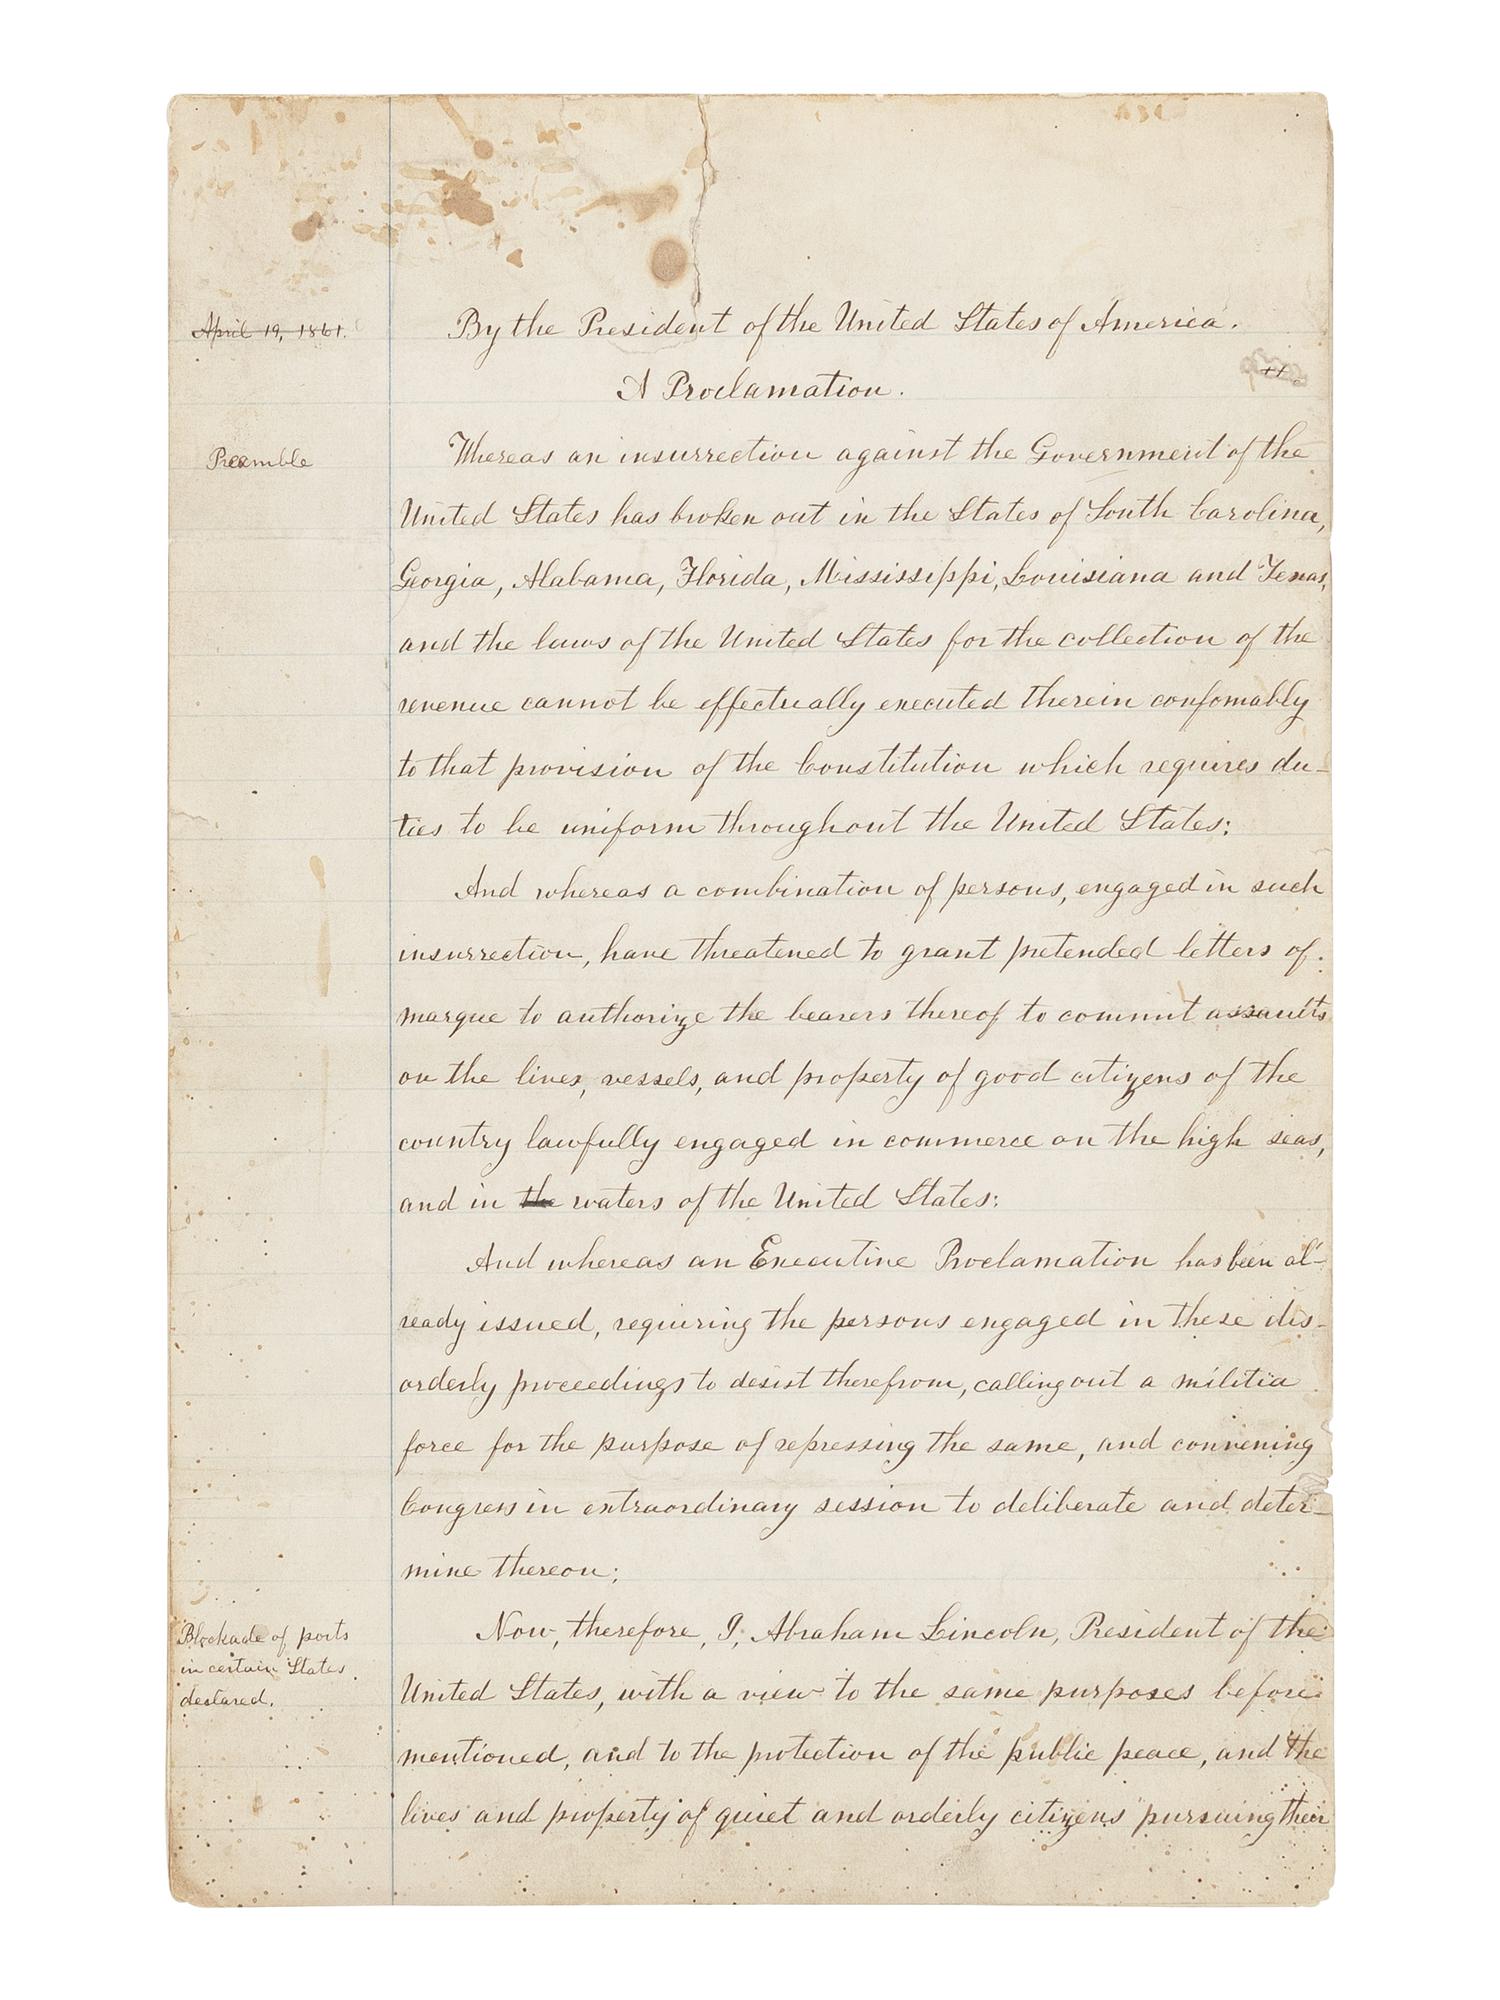 April 19, 1861.
By the President of the United States of America.
A Proclamation.
Preamble
Whereas an insurrection against the Government of the
United States has broken out in the States of South Carolina,
Georgia, Alabama, Florida, Mississippi, Louisiana and Texas,
and the laws of the United States for the collection of the
revenue cannot be effectually executed therein confomably
to that provision of the Constitution which requires du-
ties to be uniform throughout the United States:
And whereas a combination of persons, engaged in such
insurrection, have threatened to grant pretended letters of
marque to authorize the bearers thereof to commit assaults
on the lives, vessels, and property of good citizens of the
country lawfully engaged in commerce on the high seas,
and in the waters of the United States:
And whereas an Executive Proclamation has been al-
ready issued, requiring the persons engaged in these dis-
orderly proceedings to desist therefrom, calling out a militia
force for the purpose of repressing the same, and convening
Congress in extraordinary session to deliberate and deter-
mine thereon;
Blockade of ports
in certain States
declared.
Now, therefore, I, Abraham Lincoln, President of the
United States, with a view to the same purposes before
mentioned, and to the protection of the public peace, and the
lives and property of quiet and orderly citizens pursuing their